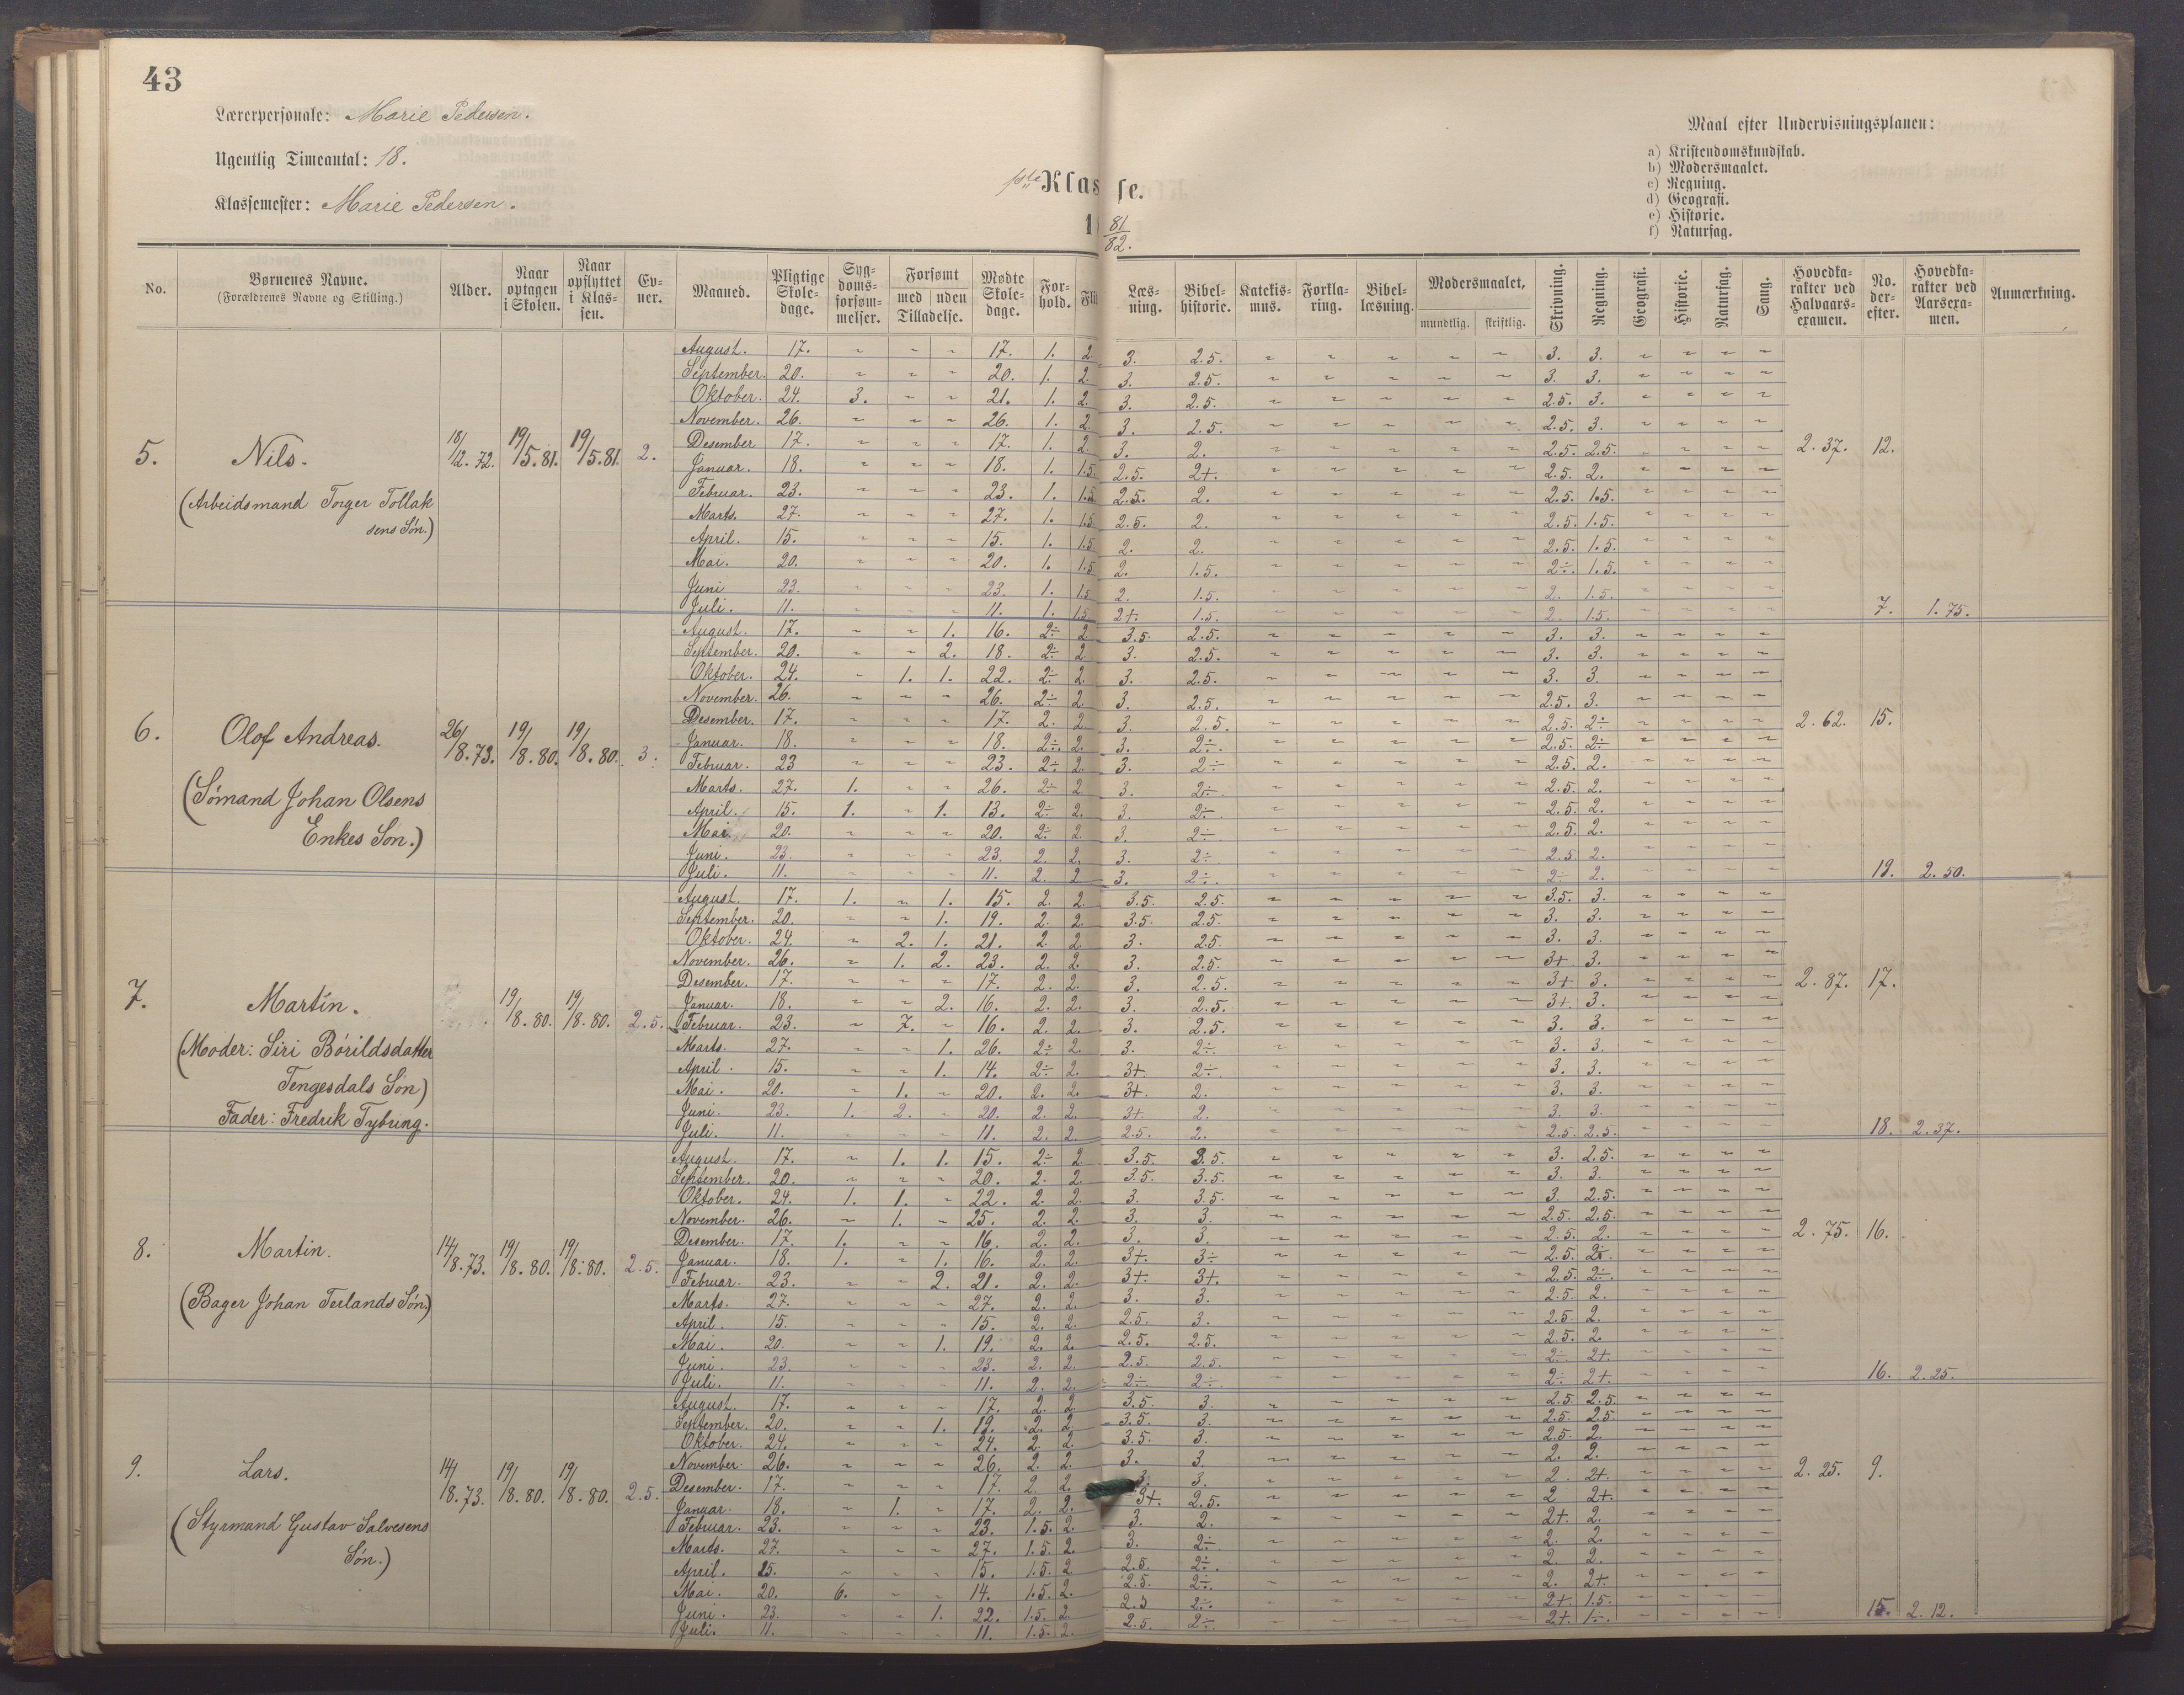 43
Lærerpersonale: Marie Pedersen.
Ugentlig Timeantal: 18.
Klassemester: Marie Pedersen.
1ste Klasse.
18 81/82.
Maal efter Undervisningsplanen:
a) Kristendomskundskab.
b) Modersmaalet.
c) Regning.
d) Geografi.
e) Historie.
f) Naturfag.
No. | Børnenes Navne. (Forældrenes Navne og Stilling.) | Alder. | Naar optagen i Skolen. | Naar opflyttet i Klassen. | Evner. | Maaned. | Pligtige Skoledage. | Sygdomsforsømmelser. | Forsømt med / uden Tilladelse. | Mødte Skoledage. | Forhold. | Fli | Læsning. | Bibelhistorie. | Katekismus. | Forklaring. | Bibellæsning. | Modersmaalet, mundtlig. / skriftlig. | Skrivning. | Regning. | Geografi. | Historie. | Naturfag. | Sang. | Hovedkarakter ved Halvaarsexamen. | No. derefter. | Hovedkarakter ved Aarsexamen. | Anmærkning.
5. Nils. 18/12.72. 19/5.81. 19/5.81. 2. 2.37. 12.
(Arbeidsmand Torger Tollak
sens Søn.)
August. 17. - - - 17. 1. 2. 3. 2.5. - - - - - 3. 3. - - - -
September. 20. - - - 20. 1. 2. 3. 2.5. - - - - - 3. 3. - - - -
Oktober. 24. 3. - - 21. 1. 2. 3. 2.5. - - - - - 2.5. 3. - - - -
November. 26. - - - 26. 1. 2. 3. 2.5. - - - - - 2.5. 3. - - - -
Desember 17. - - - 17. 1. 2. 3. 2. - - - - - 2.5. 2.5. - - - -
Januar. 18. - - - 18. 1. 1.5. 2.5. 2+. - - - - - 2.5. 2. - - - -
Februar. 23. - - - 23. 1. 1.5. 2.5. 2. - - - - - 2.5. 1.5. - - - -
Marts. 27. - - - 27. 1. 1.5. 2.5. 2. - - - - - 2.5. 1.5. - - - -
April. 15. - - - 15. 1. 1.5. 2. 2. - - - - - 2.5. 1.5. - - - -
Mai. 20. - - - 20. 1. 1.5. 2. 1.5. - - - - - 2÷. 1.5. - - - -
Juni 23. - - - 23. 1. 1.5. 2. 1.5. - - - - - 2. 1.5. - - - -
Juli. 11. - - - 11. 1. 1.5. 2+. 1.5. - - - - - 2. 1.5. - - - - 7. 1.75.
6. Olof Andreas. 26/8.73. 19/8.80. 19/8.80. 3. 2.62. 15.
(Sømand Johan Olsens
Enkes Søn.)
August. 17. - - 1. 16. 2÷ 2. 3.5. 2.5. - - - - - 3. 3. - - - -
September. 20. - - 2. 18. 2÷ 2. 3. 2.5. - - - - - 3. 3. - - - -
Oktober. 24. - 1. 1. 22. 2÷ 2. 3. 2.5. - - - - - 3. 3. - - - -
November. 26. - - - 26. 2÷ 2. 3. 2.5. - - - - - 2.5. 3. - - - -
Desember. 17. - - - 17. 2. 2. 3. 2.5. - - - - - 2.5. 2÷ - - - -
Januar. 18. - - - 18. 2÷. 2. 3. 2÷. - - - - - 2.5. 2÷ - - - -
Februar. 23 - - - 23. 2÷ 2. 3. 2÷ - - - - - 2.5. 2. - - - -
Marts. 27. 1. - - 26. 2÷ 2. 3. 2÷. - - - - - 2.5. 2. - - - -
April. 15. 1. - 1. 13. 2÷ 2. 3. 2÷. - - - - - 2.5. 2. - - - -
Mai. 20. - - - 20. 2÷ 2. 3. 2÷ - - - - - 2.5. 2. - - - -
Juni. 23. - - - 23. 2. 2. 3. 2÷. - - - - - 2.5 2. - - - -
Juli. 11. - - - 11. 2. 2 3. 2÷. - - - - - 2÷ 2. - - - - 19. 2.50.
7. Martin. 19/8.80. 19/8.80. 2.5. 2.87. 17.
(Moder: Siri Bórildsdatter
Tengesdals Søn)
Fader: Fredrik Tybring.
August. 17. 1. - 1. 15. 2. 2. 3.5. 2.5. - - - - - 3.5. 3. - - - -
September. 20. - - 1. 19. 2. 2. 3.5. 2.5. - - - - - 3. 3. - - - -
Oktober. 24. - 2. 1. 21. 2. 2. 3. 2.5. - - - - - 3. 3. - - - -
November. 26. - 1. 2. 23. 2. 2. 3. 2.5. - - - - - 3+ 3. - - - -
Desember. 17. - - - 17. 2. 2. 3. 2.5. - - - - - 3+ 3. - - - -
Januar. 18. - - 2. 16. 2. 2. 3. 2.5. - - - - - 3+. 3. - - - -
Februar. 23. - 7. - 16. 2. 2. 3. 2.5. - - - - - 3. 3. - - - -
Marts. 27. - - 1. 26. 2÷ 2. 3. 2÷. - - - - - 3. 3. - - - -
April. 15. - - 1. 14. 2÷ 2. 3+ 2÷ - - - - - 3. 3. - - - -
Mai. 20. - 1. - 20. 2. 2. 3+. 2. - - - - - 3. 3. - - - -
Juni. 23. 1. 2. - 20. 2. 2. 3+ 2. - - - - - 3. 3. - - - -
Juli. 11. - - - 11. 2. 2. 2.5. 2. - - - - - 2.5. 2.5. - - - - 18. 2.37.
8. Martin. 14/8.73. 19/8.80. 19/8.80. 2.5. 2.75. 16.
(Bager Johan Teilands Søn)
August. 17. - 1. 1. 15. 2÷ 2. 3.5. 3.5. - - - - - 3. 2.5. - - - -
September. 20. - - - 20. 2. 2. 3.5. 3.5. - - - - - 3. 3. - - - -
Oktober. 24. 1. 1. - 22. 2. 2. 3. 3.5. - - - - - 3. 2.5. - - - -
November. 26. - 1. - 25. 2. 2. 3. 3. - - - - - 2.5. 2.5. - - - -
Desember. 17. 1. - - 16. 2. 2. 3. 3. - - - - - 2.5. 2. - - - -
Januar. 18. 1. - 1. 16. 2. 2. 3+. 3÷ - - - - - 2.5. 2÷. - - - -
Februar. 23. - - 2. 21. 2. 2. 3+. 3+. - - - - - 2.5. 2÷. - - - -
Marts. 27. - - - 27. 2. 2. 3. 3. - - - - - 2.5. 2. - - - -
April. 15. - - - 15. 2. 2. 2.5. 3. - - - - - 2.5 2. - - - -
Mai. 20. - - 1. 19. 2. 2. 2.5. 2.5. - - - - - 2.5. 2. - - - -
Juni. 23. - - - 23. 2. 2. 2.5. 2.5. - - - - - 2÷ 2+. - - - -
Juli. 11. - - - 11. 2. 2. 2÷ 2÷. - - - - - 2÷ 2+. - - - - 16. 2.25.
9. Lars. 14/8.73. 19/8.80. 19/8.80. 2.5. 2.25. 9.
(Styrmand Gustav Salvesens
Søn.)
August. 17. - - - 17. 2. 2. 3.5. 3. - - - - - 2.5. 2.5. - - - -
September. 20. - - 1. 19. 2. 2. 3.5. 3. - - - - - 2.5. 2.5. - - - -
Oktober. 24. - - - 24. 2. 2. 3.5. 3. - - - - - 2.5. 2. - - - -
November. 26. - - - 26. 2. 2. 3. 3. - - - - - 2. 2. - - - -
Desember. 17. - - - 17. 2. 2. 3. 3. - - - - - 2 2+. - - - -
Januar. 18. - 1. - 17. 2. 2. 3+. 2.5. - - - - - 2 2+. - - - -
Februar. 23. - - - 23. 1.5. 2. 3. 2. - - - - - 2+. 2. - - - -
Marts. 27. - - - 27. 1.5. 2. 3. 2÷ - - - - - 2. 2. - - - -
April. 15. - - - 15. 1.5. 2. 2.5. 2÷. - - - - - 2. 2. - - - -
Mai. 20. 6. - - 14. 1.5. 2. 2.5. 2÷. - - - - - 2. 2+. - - - -
Juni. 23. - - 1. 22. 1.5. 2. 2.5 2÷. - - - - - 2+ 1.5. - - - -
Juli. 11. - - - 11. 1.5. 2. 2.5. 2÷ - - - - - 2+. 1÷. - - - - 15. 2.12.